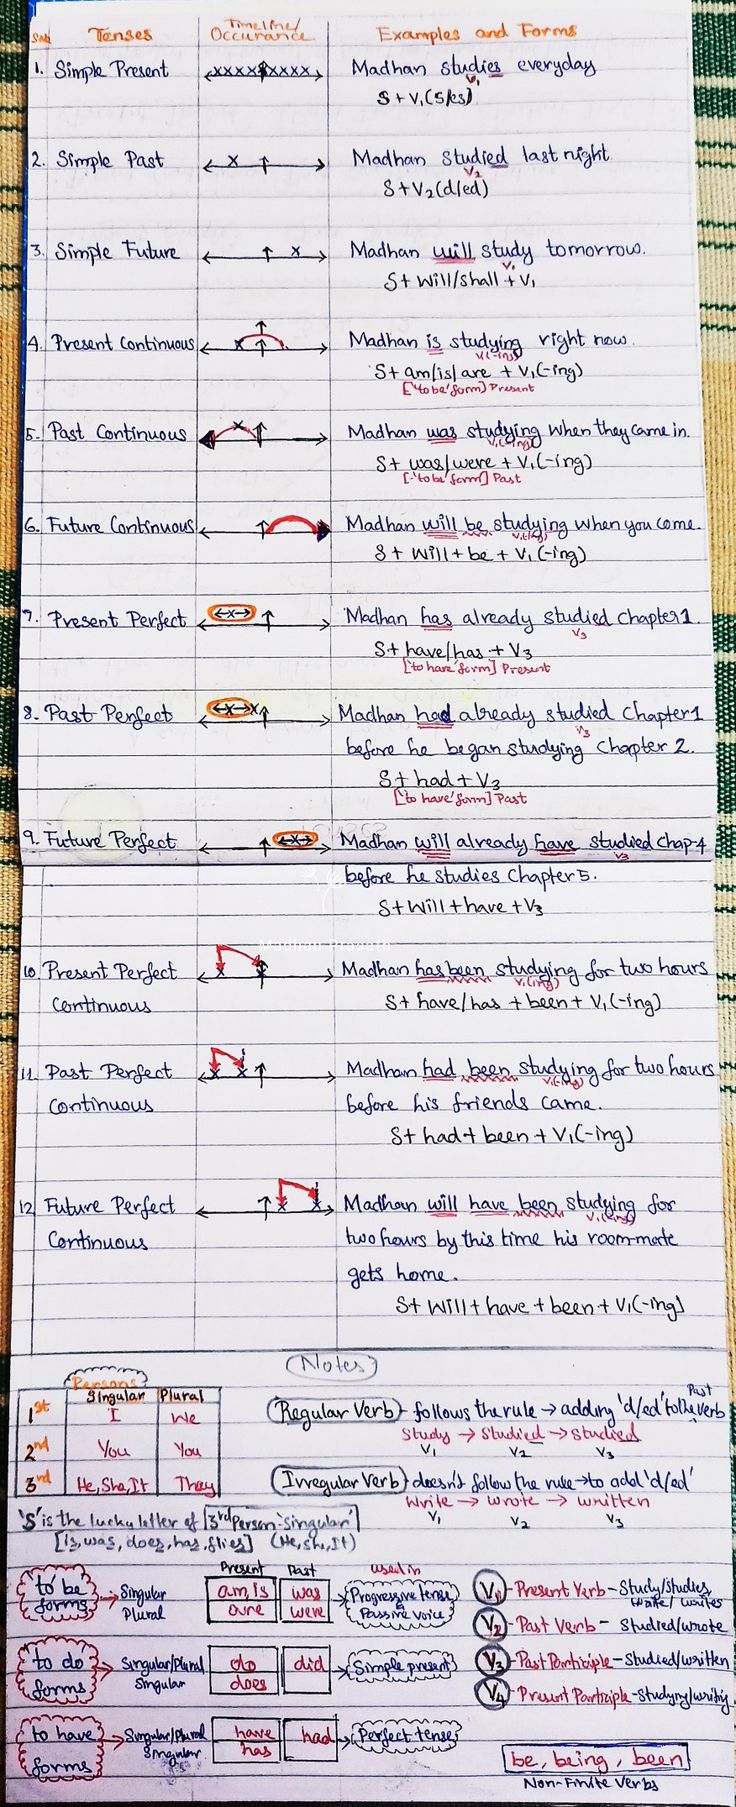 S.No Tenses Timeline/ Occurance Examples and Forms
1. Simple Present xxxxx xxxx Madhan studies everyday
V1
S + V1 (s/es)
2. Simple Past x Madhan studied last night.
V2
S+V2 (d/ed)
3. Simple Future x Madhan will study tomorrow.
V1
S+ will/shall + V1
4. Present Continuous x Madhan is studying right now.
V1(-ing)
S+ am/is/are + V1(-ing)
['to be' form] Present
5. Past Continuous x Madhan was studying when they came in.
V1(-ing)
S+ was/were + V1(-ing)
['to be' form] Past
6. Future Continuous Madhan will be studying when you come.
V1(-ing)
S+ will + be + V1(-ing)
7. Present Perfect x Madhan has already studied chapter 1.
V3
S+have/has + V3
['to have' form] Present
8. Past Perfect x x Madhan had already studied Chapter 1
V3
before he began studying Chapter 2.
S+had+V3
['to have' form] Past
9. Future Perfect x Madhan will already have studied chap-4
V3
before he studies Chapter 5.
S+will+have+V3
10. Present Perfect x x Madhan has been studying for two hours
V1(ing)
Continuous S+have/has +been+V1(-ing)
11. Past Perfect x x Madham had been studying for two hours
V1(-ing)
Continuous before his friends came.
S+had+been+V1(-ing)
12. Future Perfect x x Madhan will have been studying for
V1(-ing)
Continuous two hours by this time his room-mate
gets home.
S+will+have+been+V1(-ing)
Notes
Persons
Singular Plural
1st I We
2nd You You
3rd He, She, It They
Regular Verb - follows the rule → adding 'd/ed' to the Past verb
Study → Studied → Studied
V1 V2 V3
Irregular Verb - doesn't follow the rule → to add 'd/ed'
Write → wrote → written
V1 V2 V3
'S' is the lucky letter of '3rd Person-singular'
[is, was, does, has, flies] (He, She, It)
Present Past used in
'to be' forms → Singular am, is was → Progressive tense &
Plural are were Passive voice
to do forms → Singular/Plural do did → Simple present
Singular does
to have forms → Singular/Plural have had → Perfect tense
Singular has
V1 - Present Verb - Study/Studies,
write/writes
V2 - Past Verb - Studied/wrote
V3 - Past Participle - Studied/written
V4 - Present Participle - Studying/writing
be, being, been
Non-Finite Verbs